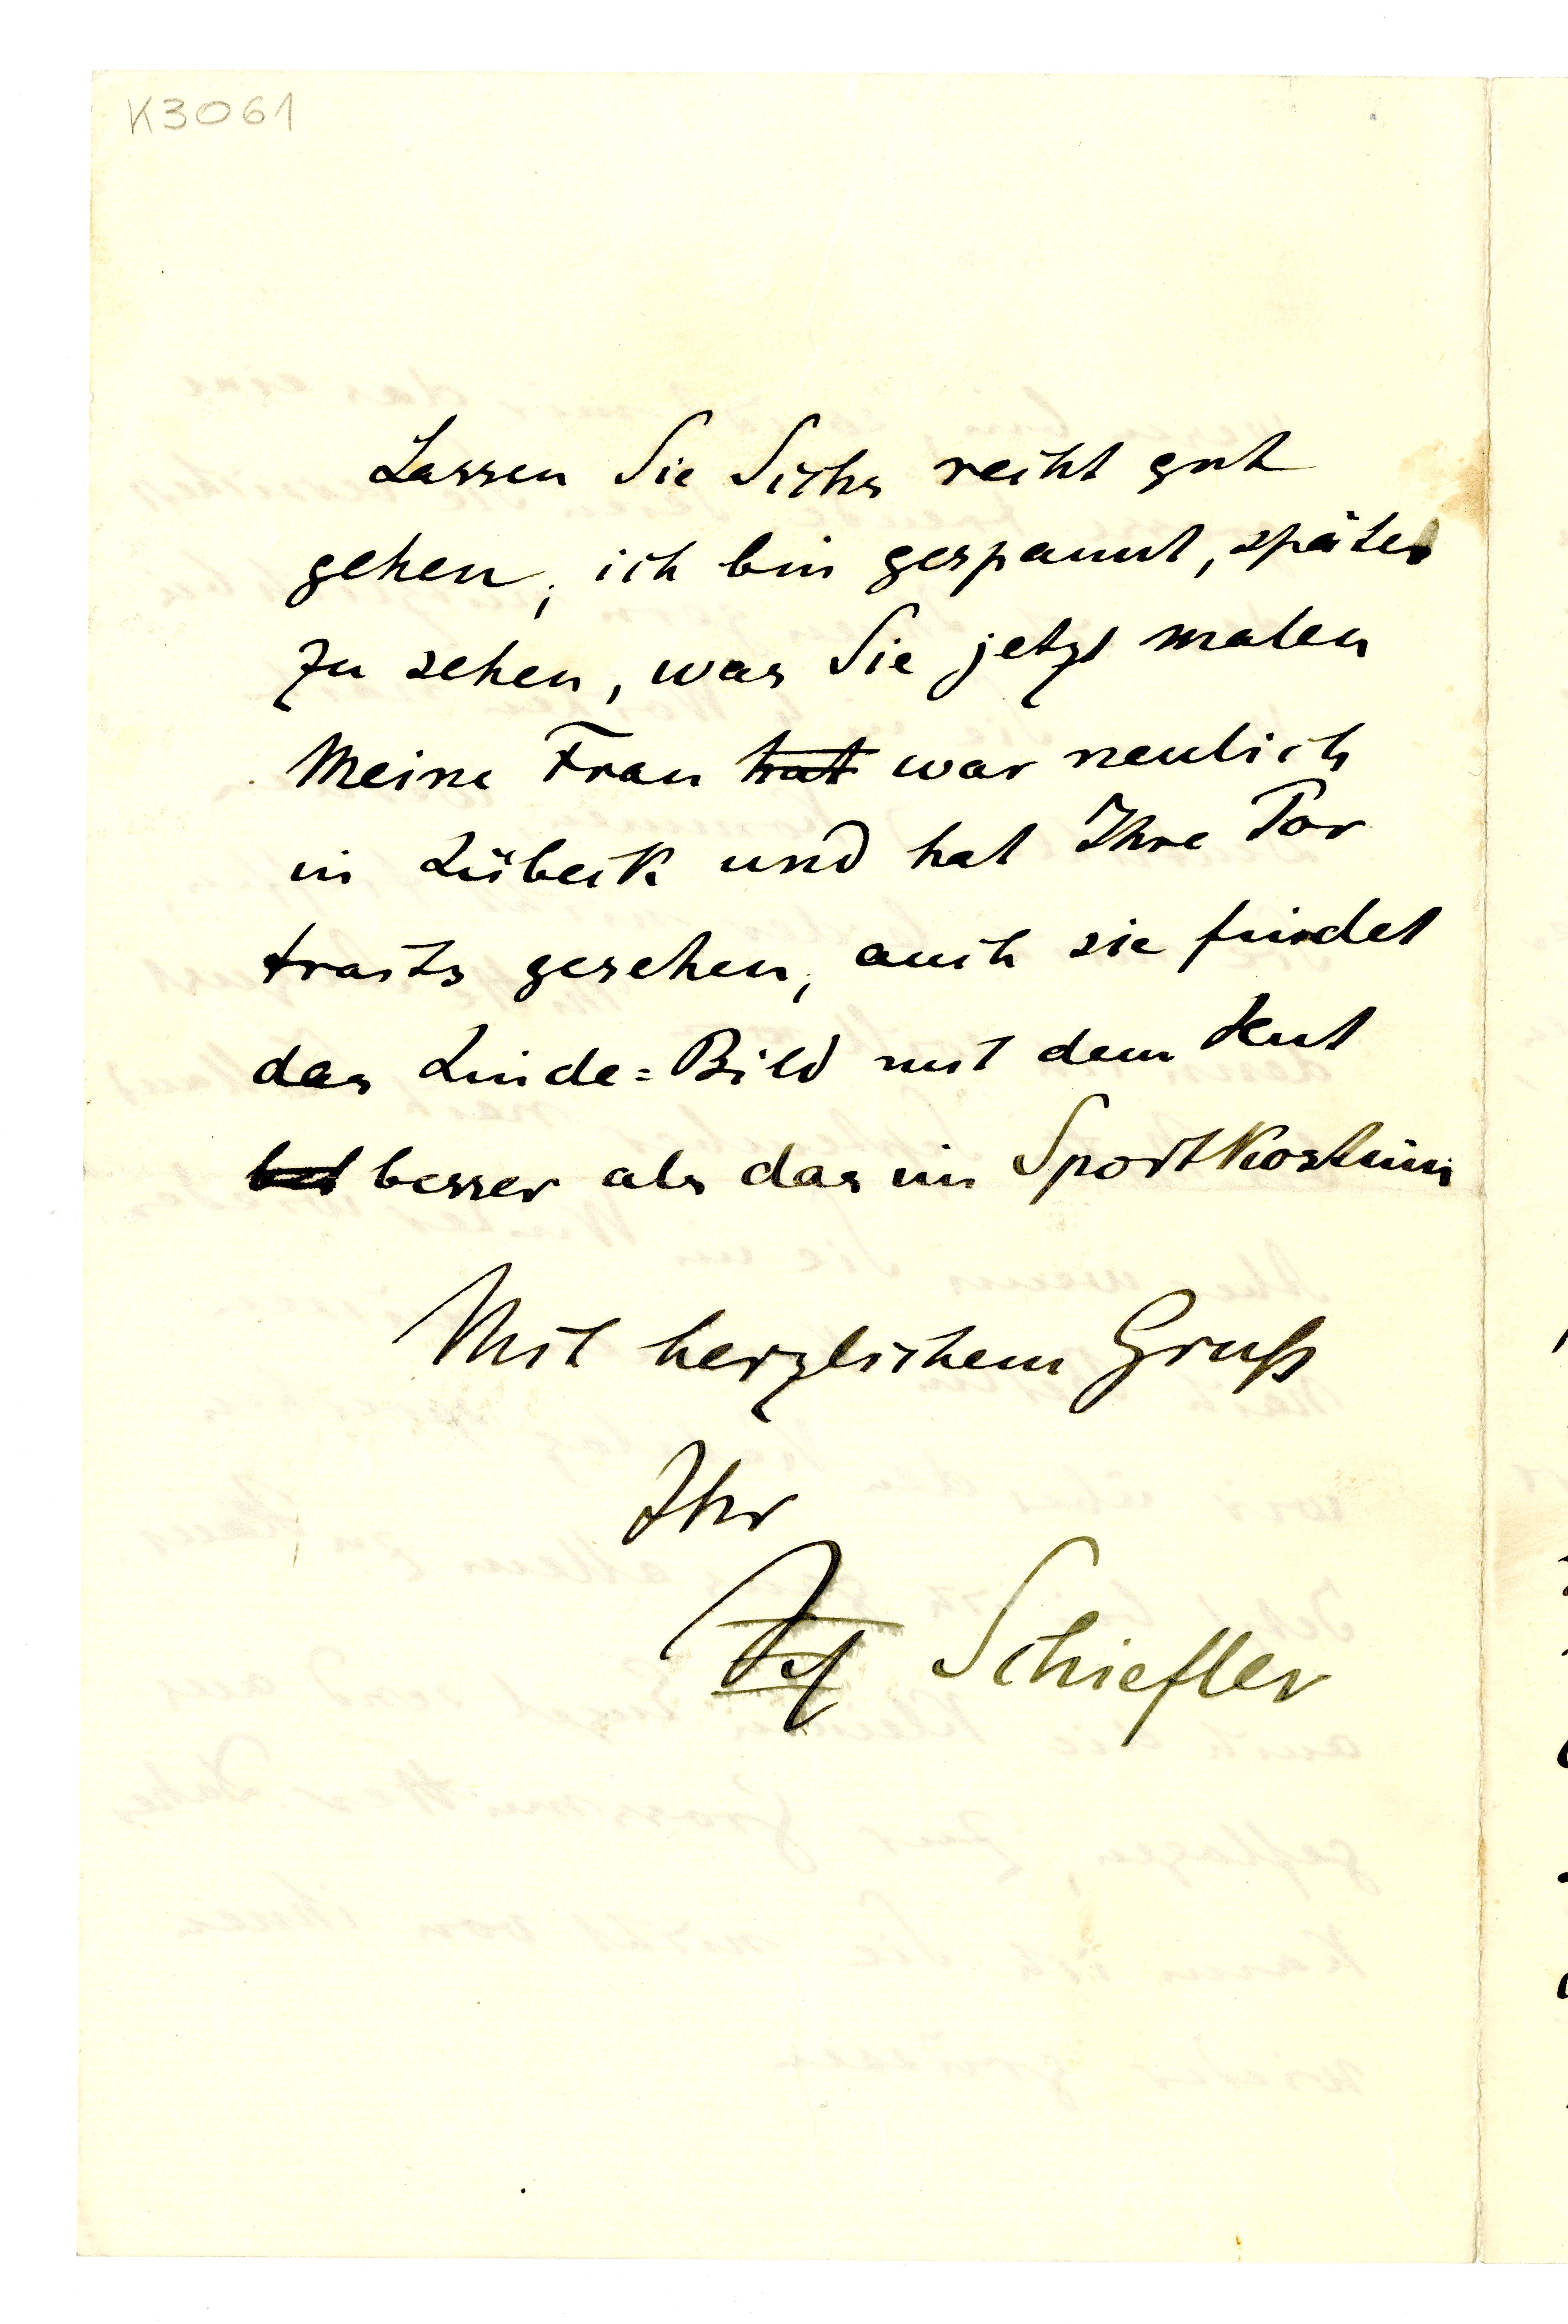 K3061
Lassen Sie Sichs recht gut
gehen; ich bin gespannt, später
zu sehen, was Sie jetzt malen
Meine Frau hat war neulich
in Lübeck und hat Ihre Por
traits gesehen; auch sie findet
das Linde=Bild mit dem Hut
besser als das im Sportkostüm
Mit herzlichem Gruß
Ihr
Schiefler